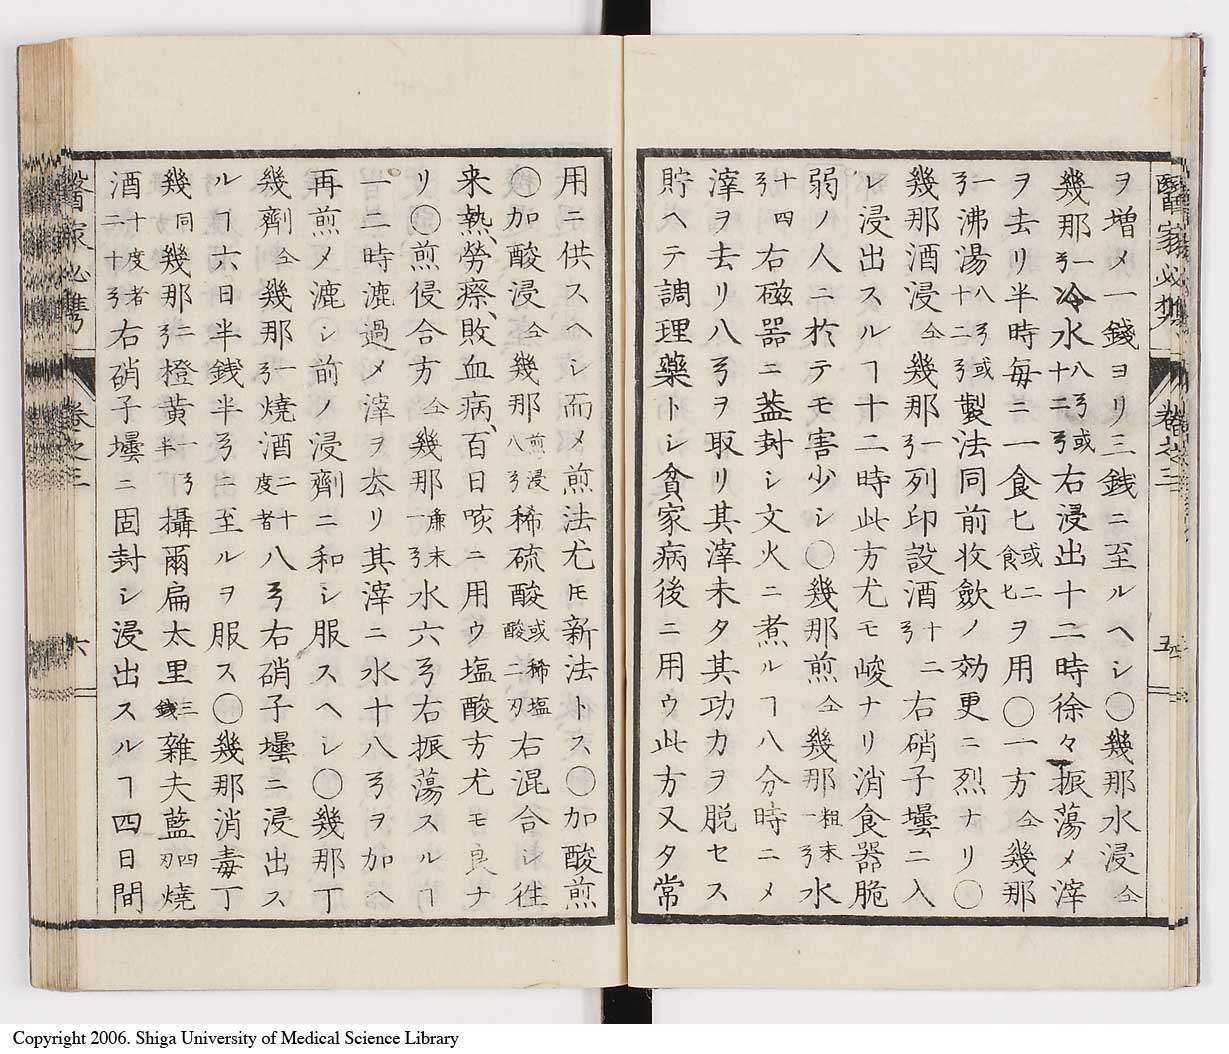 ヲ増メ一錢ヨリ三銭ニ至ルヘシ○幾那水浸仝
幾那一ヲ冷水八ヲ或十二ヲ右浸出十二時徐々振蕩メ滓
ヲ去リ半時毎ニ一食匕或二食匕ヲ用○一方仝幾那
一ヲ沸湯八ヲ或十二ヲ製法同前收斂ノ効更ニ烈ナリ○
幾那酒浸仝幾那一ヲ列印設酒十二ヲ右硝子壜ニ入
レ浸出スルヿ十二時此方尤モ峻ナリ消食器脆
弱ノ人ニ於テモ害少シ○幾那煎仝幾那粗末一ヲ水
十四ヲ右磁器ニ葢封シ文火ニ煮ルヿ八分時ニメ
滓ヲ去リ八ヲヲ取リ其滓未タ其功力ヲ脱セス
貯ヘテ調理藥トシ貧家病後ニ用ウ此方又タ常
用ニ供スヘシ而メ煎法尤モ新法トス○加酸煎
○加酸浸仝幾那煎浸八ヲ稀硫酸或稀塩酸二刃右混合シ徃
来熱、勞瘵、敗血病、百日咳ニ用ウ塩酸方尤モ良ナ
リ○煎侵合方仝幾那麁末一ヲ水六ヲ右振蕩スルヿ
一二時漉過メ滓ヲ去リ其滓ニ水十八ヲヲ加ヘ
再煎メ漉シ前ノ浸劑ニ和シ服スヘシ○幾那丁
幾劑仝幾那一ヲ燒酒二十度者八ヲ右硝子壜ニ浸出ス
ルヿ六日半銭半ヲニ至ルヲ服ス○幾那消毒丁
幾同幾那二ヲ橙黄一ヲ半攝爾扁太里三錢雜夫藍四刃燒
酒十度者二十ヲ右硝子壜ニ固封シ浸出スルヿ四日間
醫家必携
卷之三
六